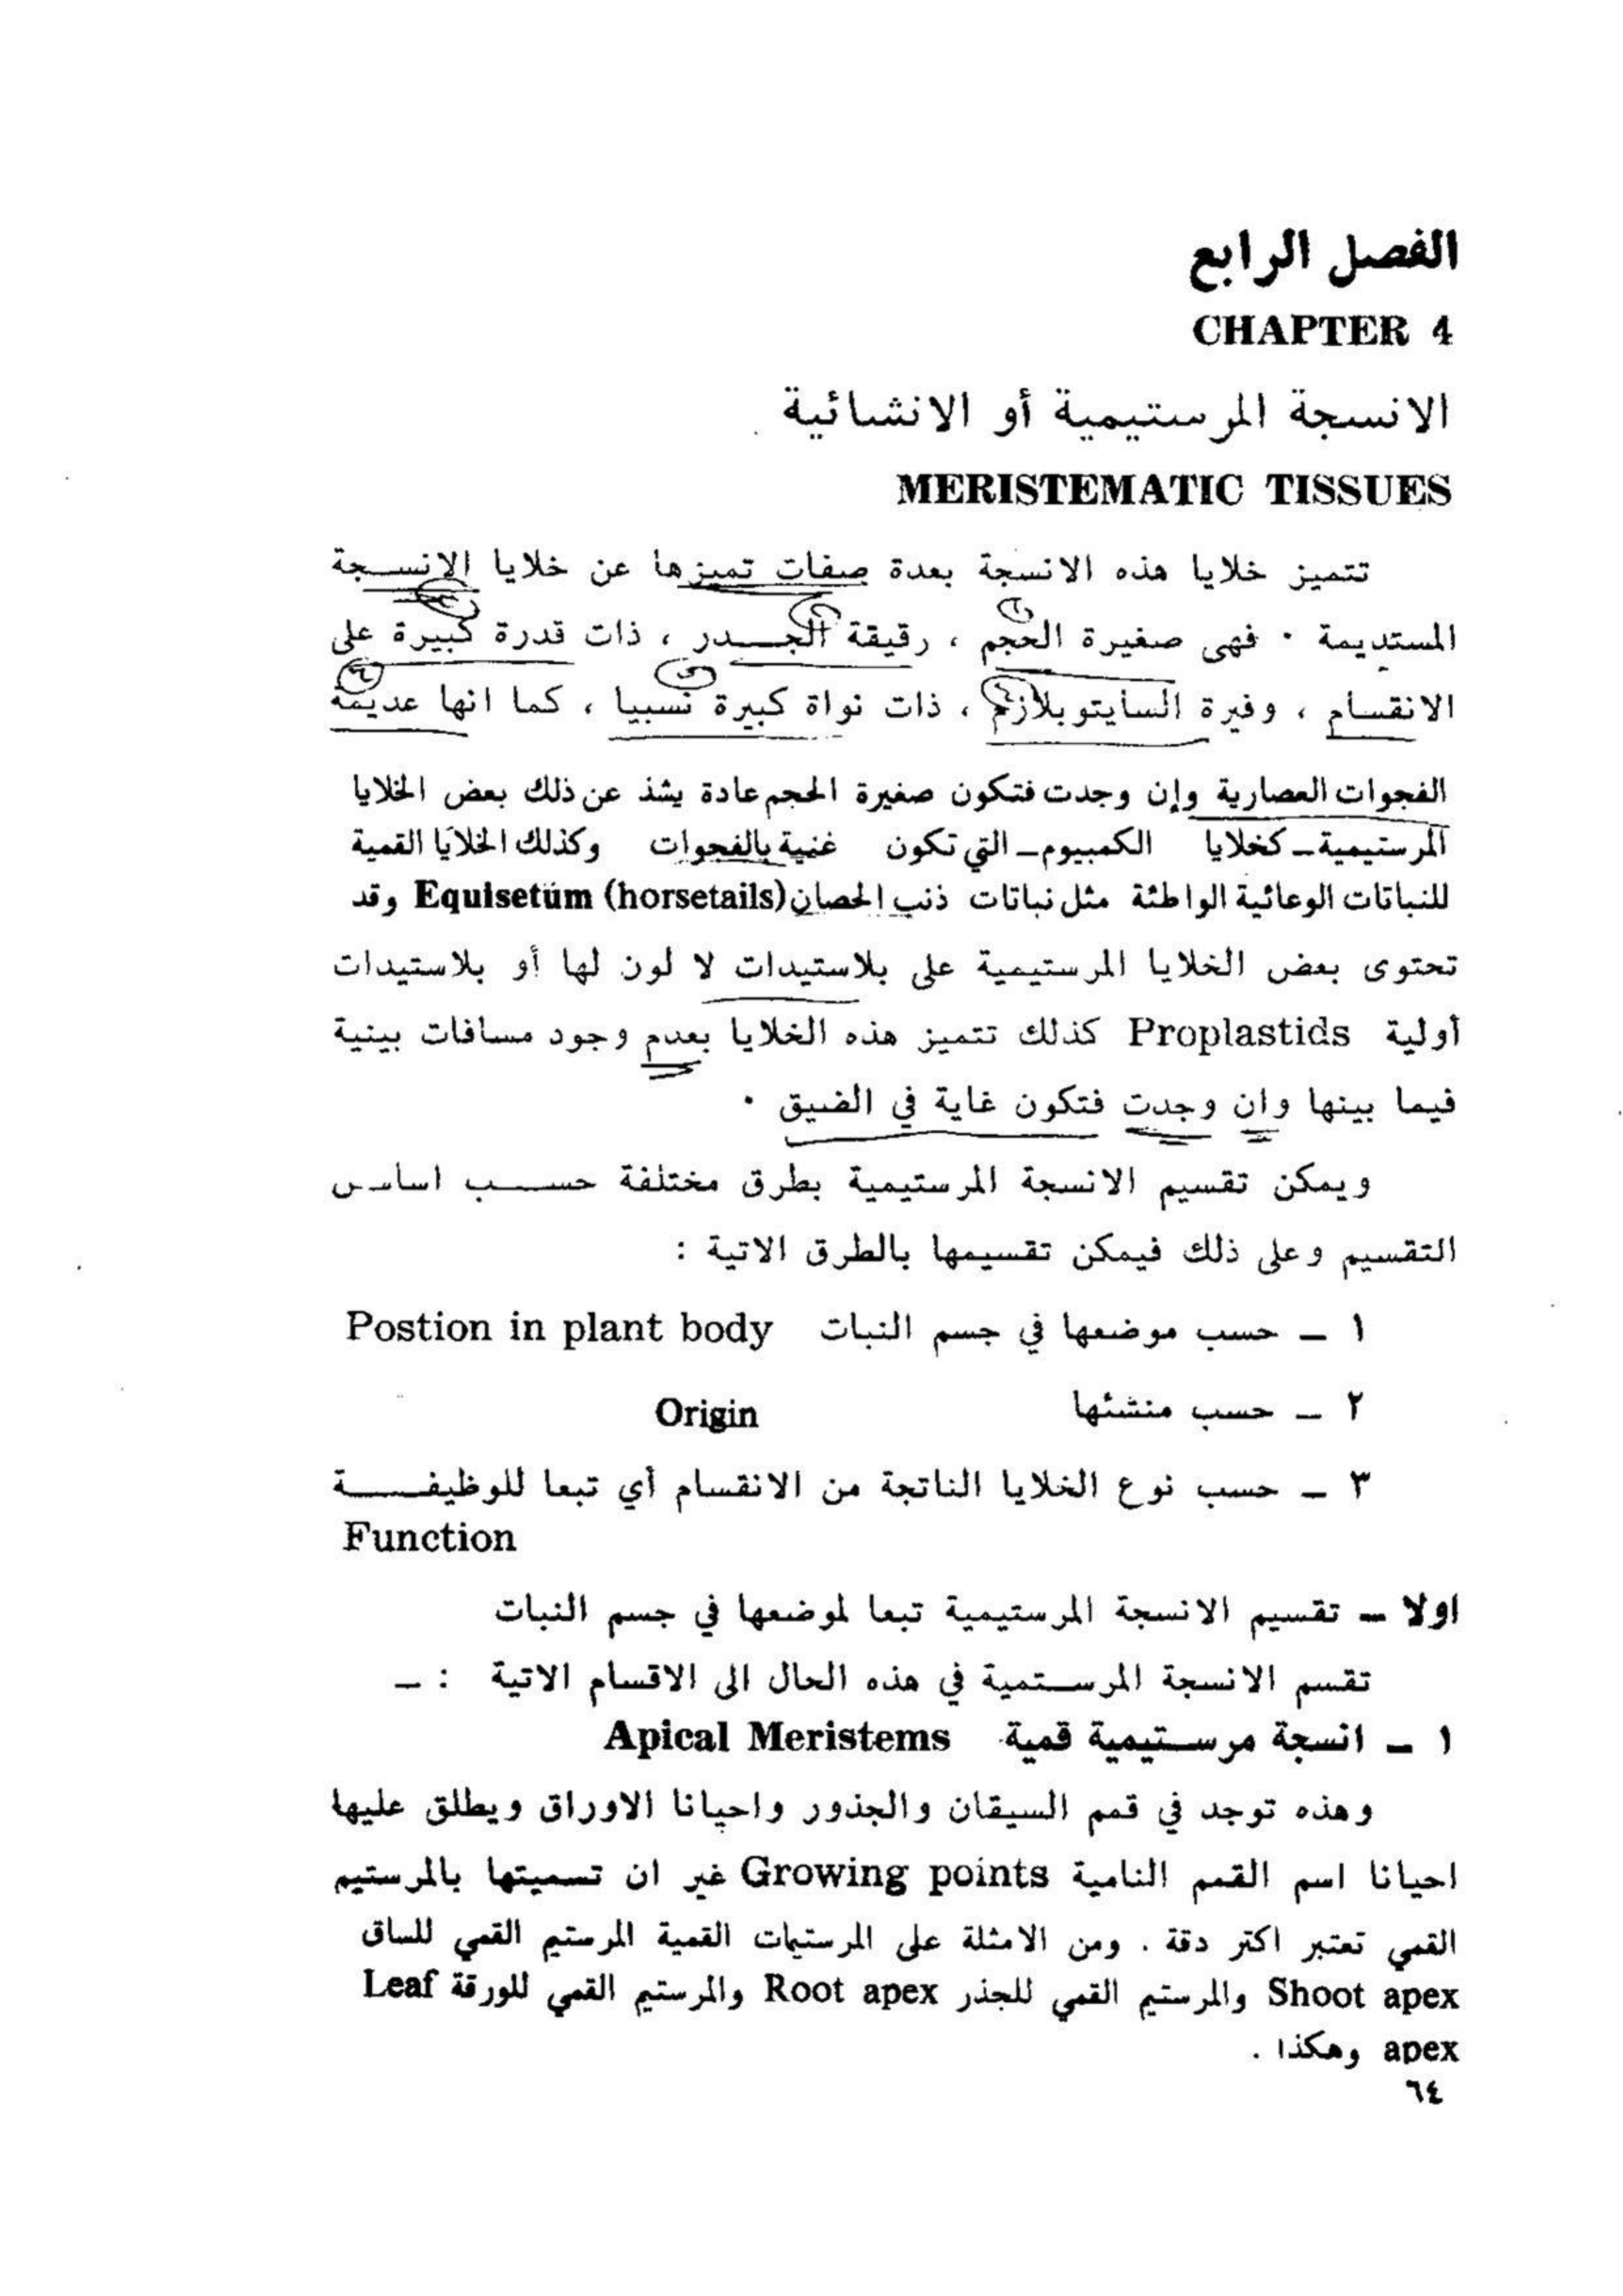 الفصل الرابع
CHAPTER 4
الانسجة المرستيمية أو الانشائية
MERISTEMATIC TISSUES
تتميز خلايا هذه الانسجة بعدة صفات تميزها عن خلايا الانسجة
المستديمة . فهى صغيرة الحجم ، رقيقة الجدر ، ذات قدرة كبيرة على
الانقسام ، وفيرة السايتوبلازم ، ذات نواة كبيرة نسبيا ، كما انها عديمة
الفجوات العصارية وإن وجدت فتكون صغيرة الحجم عادة يشذ عن ذلك بعض الخلايا
المرستيمية ــ كخلايا الكمبيوم ــ التي تكون غنية بالفجوات وكذلك الخلايا القمية
للنباتات الوعائية الواطئة مثل نباتات ذنب الحصان Equisetum (horsetails) وقد
تحتوى بعض الخلايا المرستيمية على بلاستيدات لا لون لها أو بلاستيدات
أولية Proplastids كذلك تتميز هذه الخلايا بعدم وجود مسافات بينية
فيما بينها وان وجدت فتكون غاية في الضيق .
ويمكن تقسيم الانسجة المرستيمية بطرق مختلفة حسب اساس
التقسيم وعلى ذلك فيمكن تقسيمها بالطرق الاتية :
١ ــ حسب موضعها في جسم النبات Postion in plant body
٢ ــ حسب منشئها Origin
٣ ــ حسب نوع الخلايا الناتجة من الانقسام أي تبعا للوظيفة
Function
اولا ــ تقسيم الانسجة المرستيمية تبعا لموضعها في جسم النبات
تقسم الانسجة المرستمية في هذه الحال الى الاقسام الاتية : ــ
١ ــ انسجة مرستيمية قمية Apical Meristems
وهذه توجد في قمم السيقان والجذور واحيانا الاوراق ويطلق عليها
احيانا اسم القمم النامية Growing points غير ان تسميتها بالمرستيم
القمي تعتبر اكتر دقة . ومن الامثلة على المرستيمات القمية المرستيم القمي للساق
Shoot apex والمرستيم القمي للجذر Root apex والمرستيم القمي للورقة Leaf
apex وهكذا .
٦٤